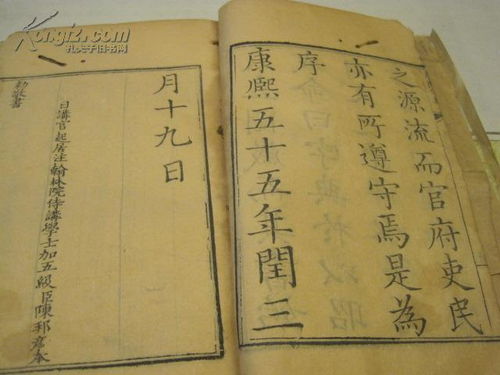 之源流而官府吏民
亦有所遵守焉是為
序
康熙五十五年閏三
月十九日
日講官起居注翰林院侍講學士加五級臣陳邦彥奉
勅敬書
Kongfz.com
孔夫子旧书网